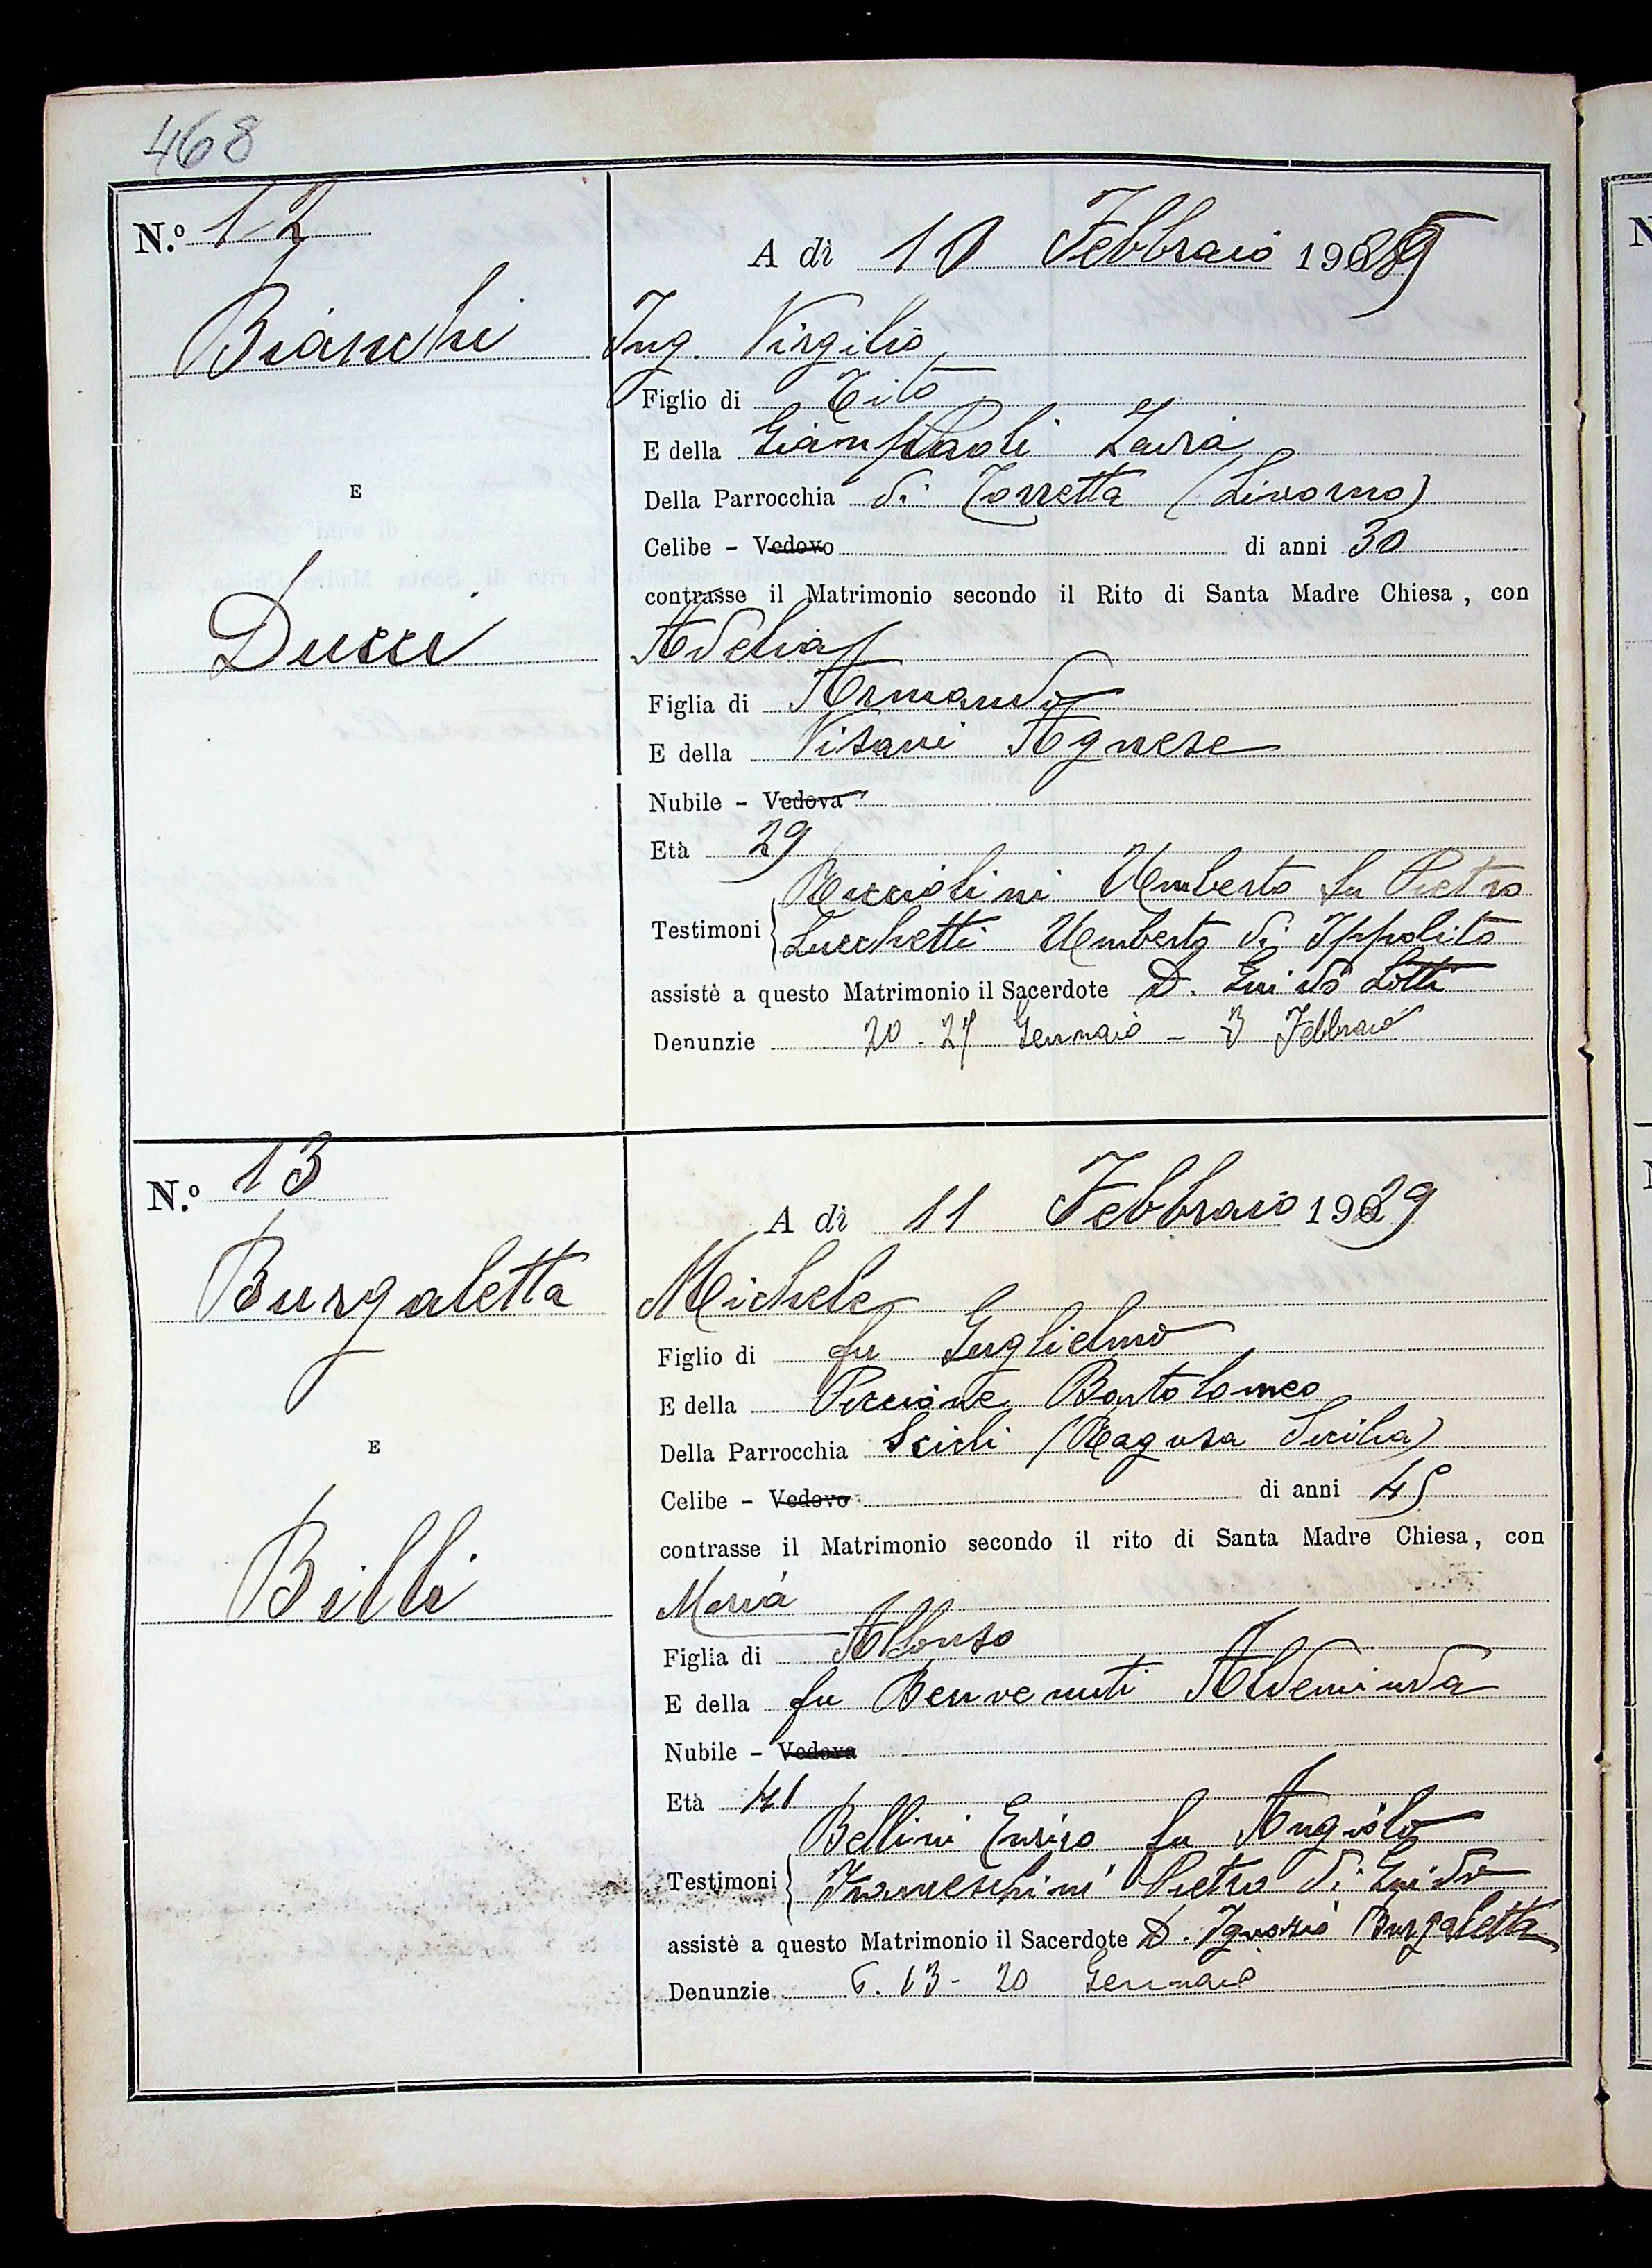 468
N.º 12
A dì 10 Febbraio 1929
Bianchi
Ing. Virgilio
Figlio di Tito
E della Giampaoli Laura
E
Della Parrocchia di Torretta (Livorno)
Celibe - Vedovo di anni 30
contrasse il Matrimonio secondo il Rito di Santa Madre Chiesa, con
Ducci
Adelia
Figlia di Armando
E della Visani Agnese
Nubile - Vedova
Età 29
Testimoni { Umberto fu Pietro
Lucchetti Umberto di Ippolito
assistè a questo Matrimonio il Sacerdote D. Guido Lotti
Denunzie 20 - 27 Gennaio - 3 Febbraio
N.º 13
A dì 11 Febbraio 1929
Burgaletta
Michele
Figlio di fu Guglielmo
E della Piccione Bartolomea
E
Della Parrocchia Scicli (Ragusa Sicilia)
Celibe - Vedovo di anni 45
contrasse il Matrimonio secondo il rito di Santa Madre Chiesa, con
Billi
Maria
Figlia di Alfonso
E della fu Benvenuti
Nubile - Vedova
Età 41
Testimoni { Bellini Enrico fu Angiolo
Franceschini Pietro di Guido
assistè a questo Matrimonio il Sacerdote D. Ignazio Burgaletta
Denunzie 6. 13 - 20 Gennaio